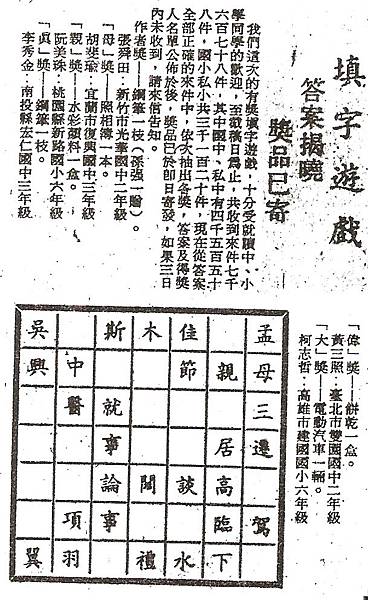 填字遊戲
答案揭曉
獎品已寄
我們這次的有獎填字遊戲，十分受就讀中、小
學同學的歡迎，至截稿日為止，共收到來件七千
六百七十八件，其中國中、私中有四千五百五十
八件，國小私小共三千一百二十件，現在從答案
全部正確的來件中，依次抽出各獎，答案及得獎
人名單公佈於後，獎品已於即日寄發，如果三日
內未收到，請來信告知。
作者獎——鋼筆一枝（孫強一贈）。
張舜田：新竹市光華國中二年級
「母」獎——照相簿一本。
胡斐瑜：宜蘭市復興國中三年級
「親」獎——水彩顏料一盒。
阮美珠：桃園縣新路國小六年級
「真」獎——鋼筆一枝。
李秀金：南投縣宏仁國中三年級
「偉」獎——餅乾一盒。
黃三照：臺北市雙園國中二年級
「大」獎——電動汽車一輛。
柯志哲：高雄市建國國小六年級
孟母三遷 駕
親 居高臨下
佳節 談 水
木 闊 禮
斯 就事論事
中醫 項羽
吳興 翼